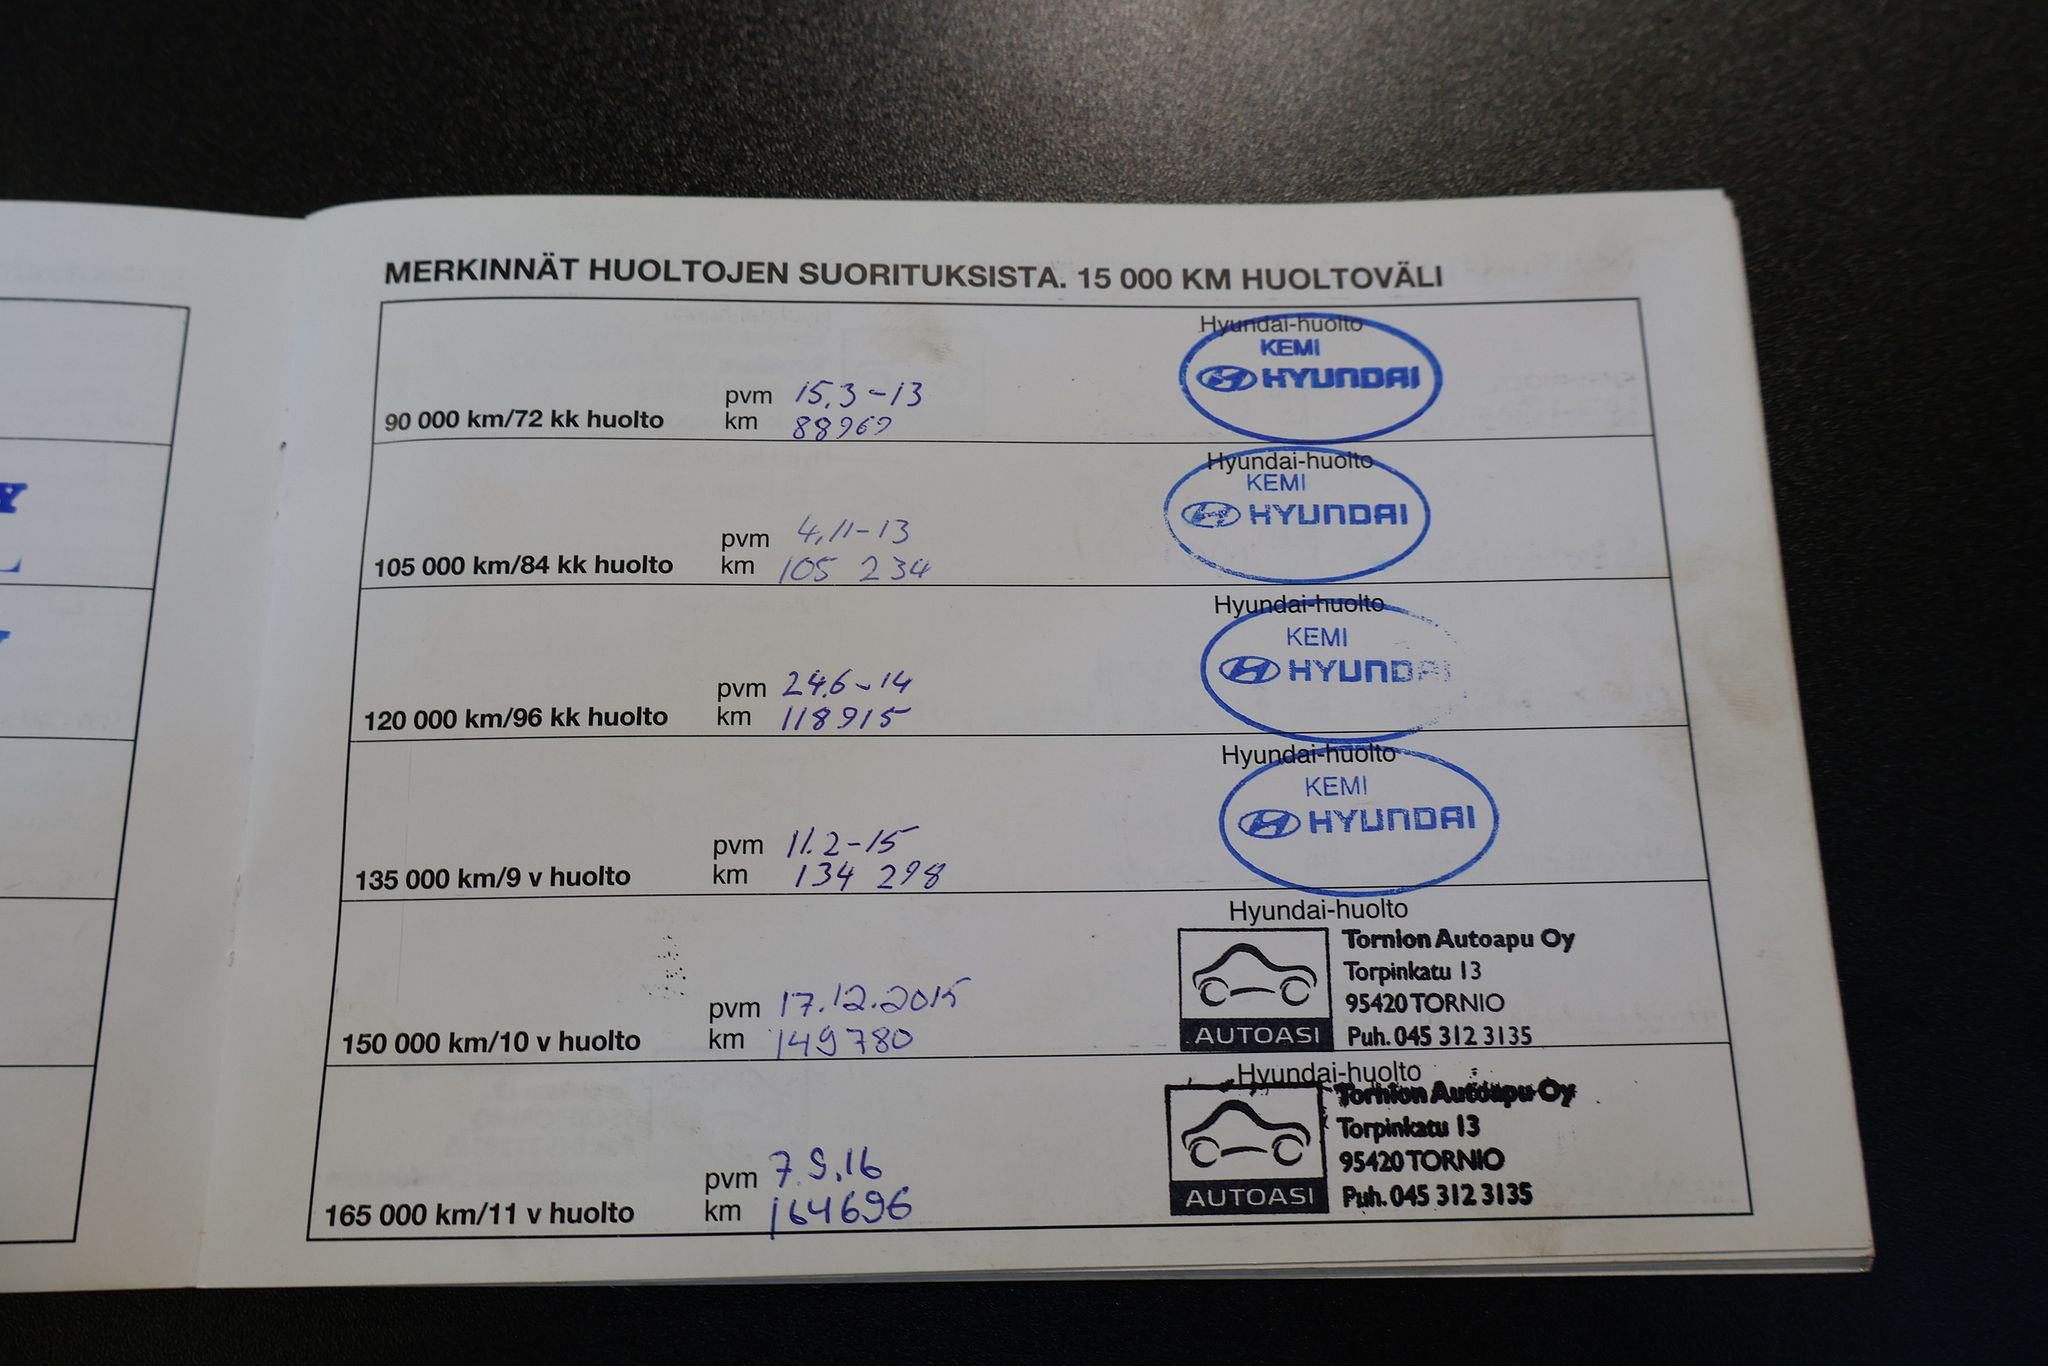 MERKINNÄT HUOLTOJEN SUORITUKSISTA. 15 000 KM HUOLTOVÄLI
Hyundai-huolto
KEMI
HYUNDAI
pvm 15.3-13
90 000 km/72 kk huolto km 88969
Hyundai-huolto
KEMI
HYUNDAI
pvm 4.11-13
105 000 km/84 kk huolto km 105 234
Hyundai-huolto
KEMI
HYUNDAI
pvm 24.6-14
120 000 km/96 kk huolto km 118915
Hyundai-huolto
KEMI
HYUNDAI
pvm 11.2-15
135 000 km/9 v huolto km 134 298
Hyundai-huolto
Tornion Autoapu Oy
Torpinkatu 13
95420 TORNIO
AUTOASI Puh. 045 312 3135
pvm 17.12.2015
150 000 km/10 v huolto km 149780
Hyundai-huolto
Tornion Autoapu Oy
Torpinkatu 13
95420 TORNIO
AUTOASI Puh. 045 312 3135
pvm 7.9.16
165 000 km/11 v huolto km 164696